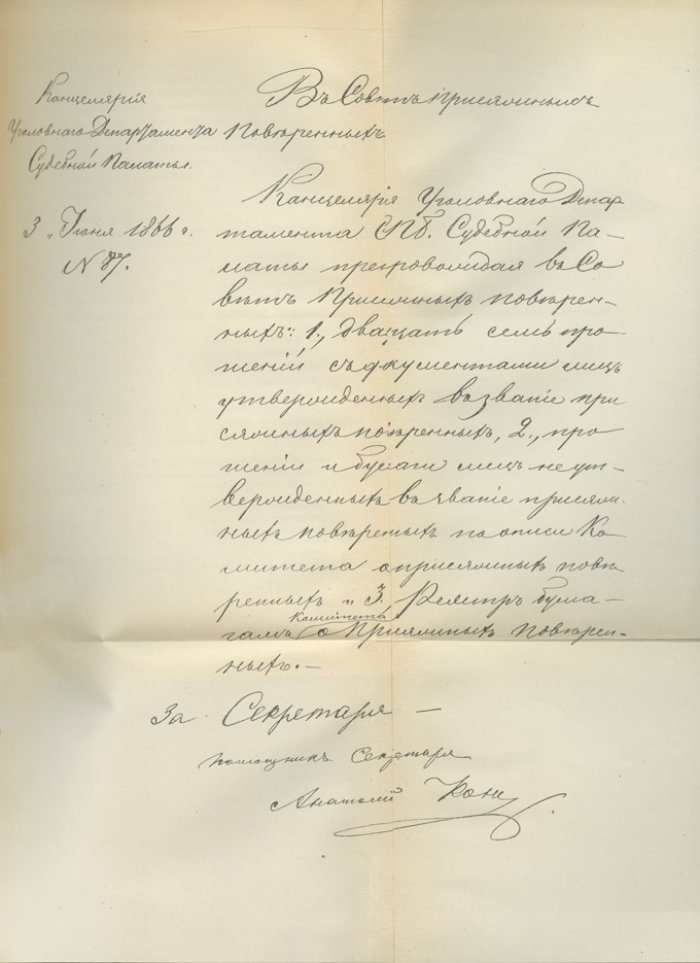 Канцелярія
Уголовнаго Департамента
Судебной Палаты.
3 „ Іюня 1866 г.
N 87.
Въ Совѣтъ присяжныхъ
повѣренныхъ
Канцелярія Уголовнаго Депар
тамента СПб. Судебной Па-
латы препровождая въ Со
вѣтъ Присяжныхъ повѣрен-
ныхъ: 1., двадцать семь про-
шеній съ документами лицъ
утвержденныхъ въ званіе при
сяжныхъ повѣренныхъ, 2., про-
шеніи и бумаги лицъ не ут-
вержденныхъ въ званіе присяж-
ныхъ повѣреныхъ по описи Ко
митета о присяжныхъ повѣ
ренныхъ и 3. Реэстръ бума-
гамъ Комитета о Присяжныхъ повѣрен-
ныхъ. —
За Секретаря —
помощникъ Секретаря
Анатолій Кони